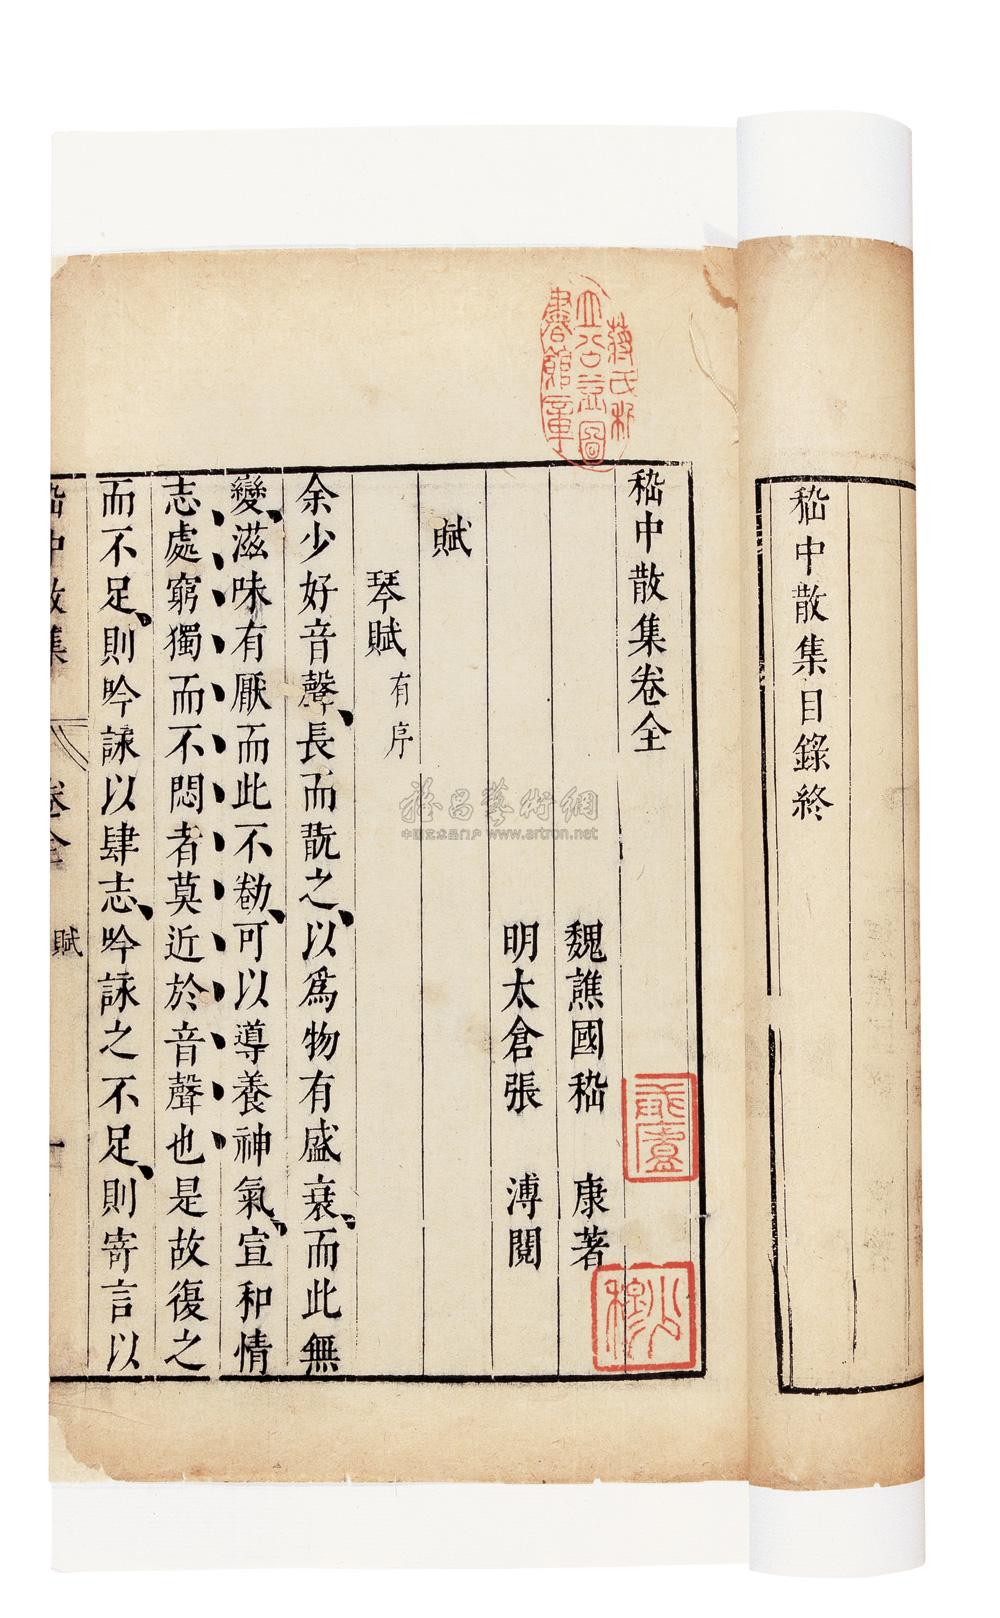 嵇中散集目錄終
嵇中散集卷全
魏譙國嵇 康著
明太倉張 溥閱
賦
琴賦有序
余少好音聲、長而翫之、以爲物有盛衰、而此無
變、滋味有厭而此不勌、可以導養神氣、宣和情
志處窮獨而不悶者莫近於音聲也是故復之
而不足、則吟詠以肆志、吟詠之不足、則寄言以
嵇中散集 卷全 賦 一
蔣氏祈
公益圖
書館章
雅昌藝術網
中国艺术品门户 www.artron.net